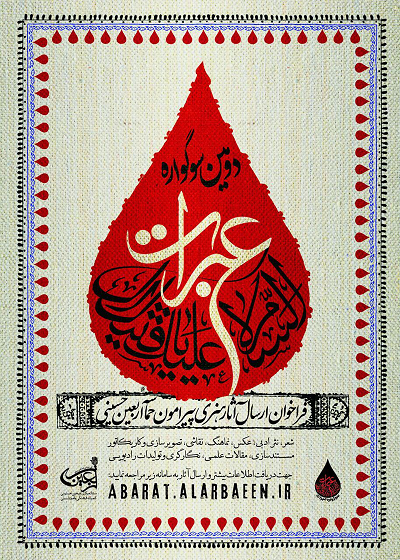 دومین سوگواره
عبرات
السلام علیک یا قتیل
فراخوان ارسال آثار هنری پیرامون حماسهٔ اربعین حسینی
شعر، نثر ادبی؛ عکس، نماهنگ، نقاشی، تصویرسازی و کاریکاتور
مستندسازی، مقالات علمی، نگارگری و تولیدات رادیویی
جهت دریافت اطلاعات بیشتر و ارسال آثار به سامانه زیر مراجعه نمایید.
ABARAT.ALARBAEEN.IR